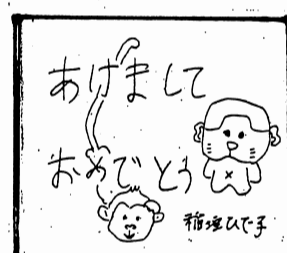 あけまして
おめでとう
稲垣ひで子